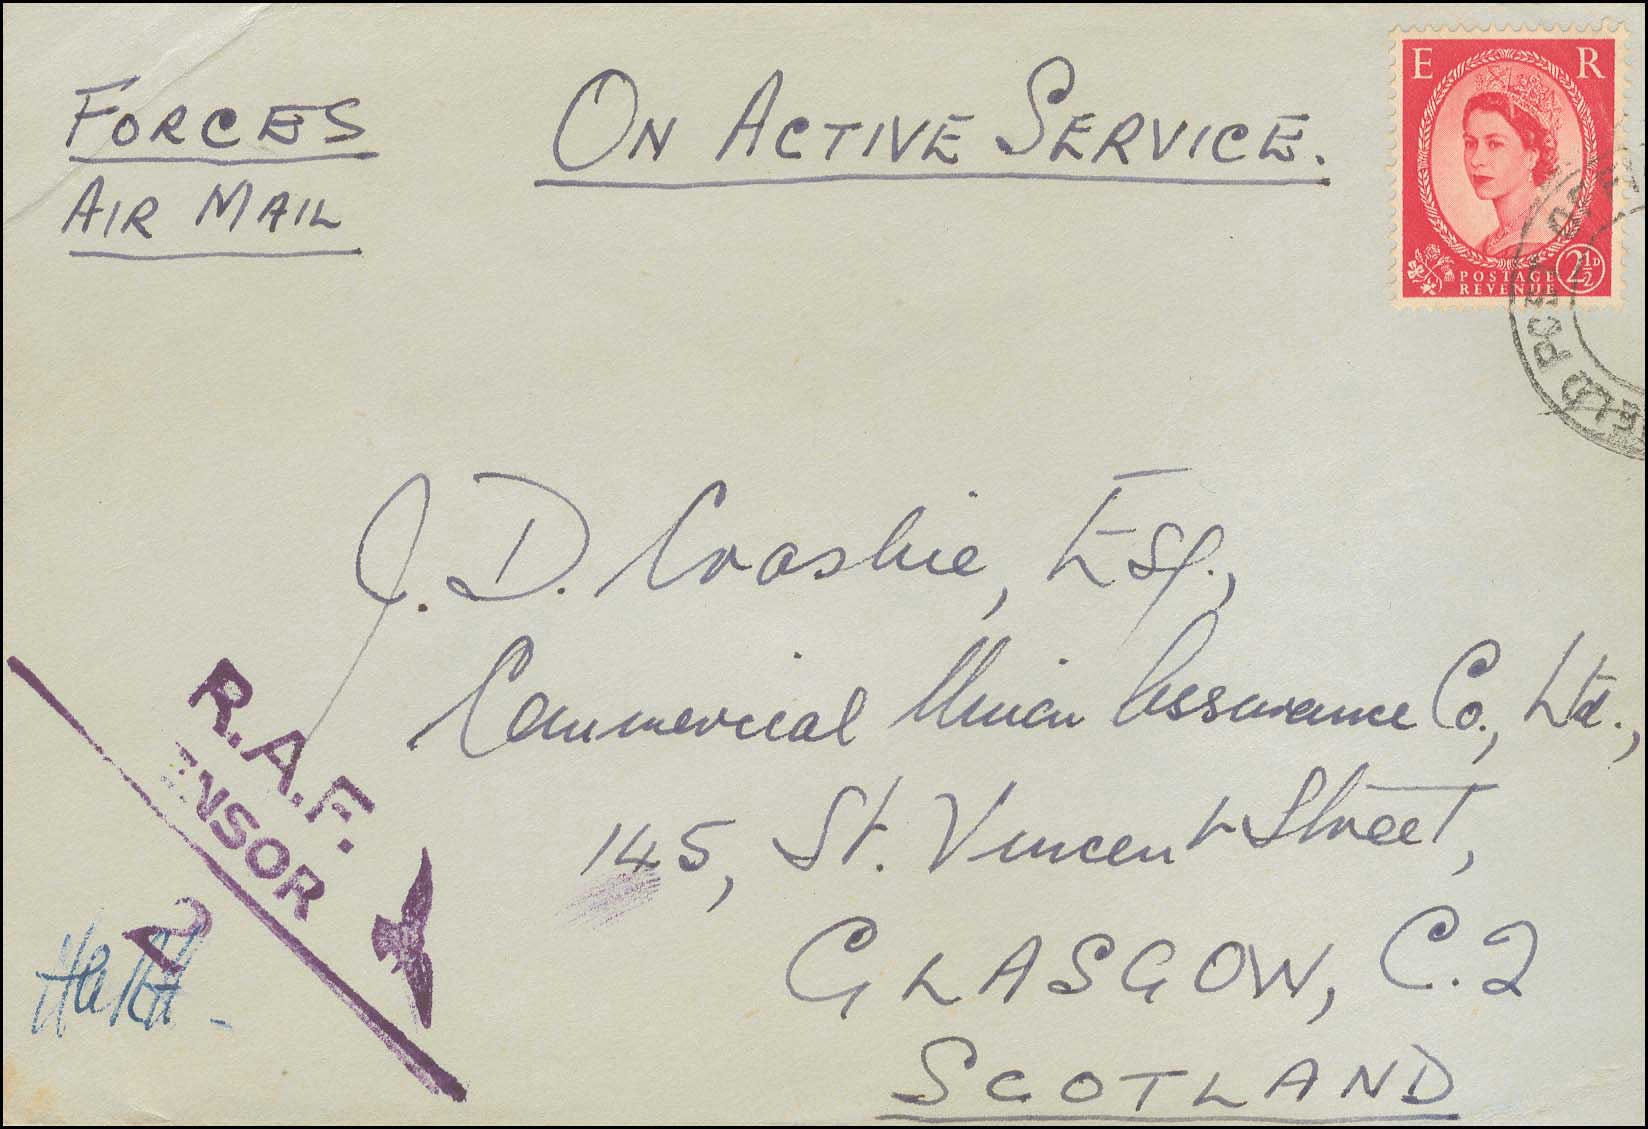 FORCES
AIR MAIL
ON ACTIVE SERVICE.
E R
POSTAGE
REVENUE
2½D
FIELD POST OFFICE
J. D. Crosbie, Esq.,
Commercial Union Assurance Co., Ltd.,
145, St. Vincent Street,
GLASGOW, C.2
SCOTLAND
R.A.F.
ENSOR
2